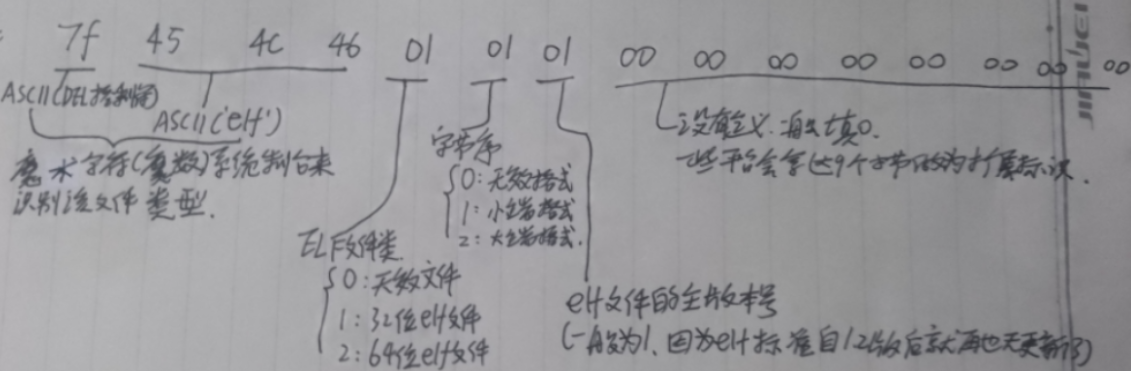 7f 45 4C 46 01 01 01 00 00 00 00 00 00 00 00
ASCII(DEL控制符)
ASCII('elf')
魔术字符(魔数)系统制台来
识别该文件类型.
ELF文件类
0:无效文件
1:32位elf文件
2:64位elf文件
字节序
0:无效格式
1:小端格式
2:大端格式.
elf文件的主版本号
(一般为1、因为elf标准自1.2版后就再也无更新了)
没有定义.一般填0.
一些平台会拿这9个字节做为扩展标识.
JINHUIJEI